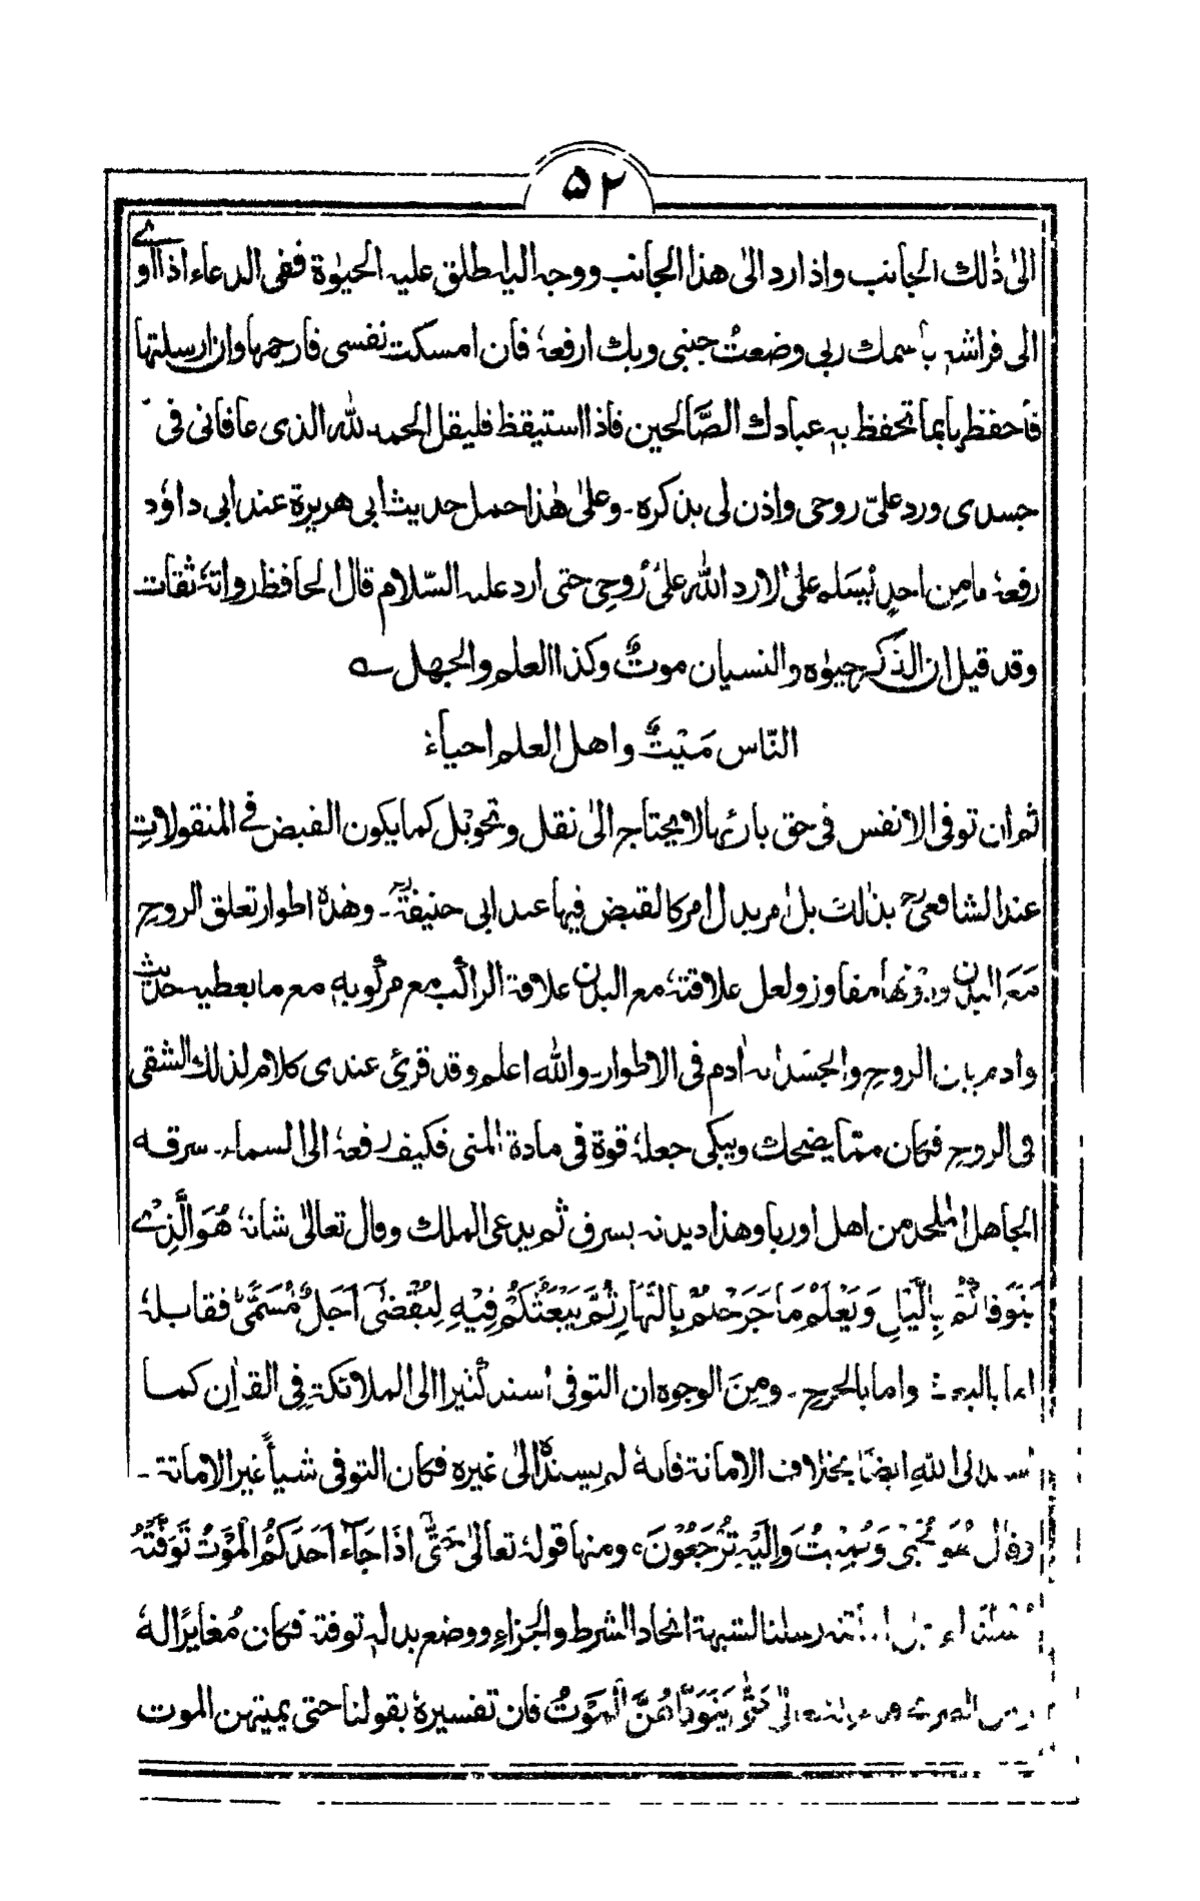 ۵۲
الیٰ ذٰلك الجانب واذا رد الیٰ هذا الجانب ووجه الیه یطلق علیه الحیٰوة ففی الدعاء اذا اوٰے
الی فراشہٖ باسمك ربی وضعتُ جنبی وبك ارفعہٗ فان امسكت نفسی فارحمها وان ارسلتها
فاحفظها بما تحفظ بہٖ عبادك الصَّالحین فاذا استیقظ فلیقل الحمد للّٰه الذی عافانی فی
جسدی ورد علیّ روحی واذن لی بذكره ۔ وعلیٰ هٰذا حمل حدیث ابی هریرة عند ابی داؤد
رفعہٗ مامِن احدٍ یُسَلم علیّ الا رد اللّٰه علیّ رُوحِی حتی ارد علیه السّلام قال الحافظ رواتہٗ ثقات
وقد قیل ان الذكر حیٰوة والنسیان موتٌ وكذا العلم والجهل ؎
النّاس مَیْتٌ واهل العلم احیاءٗ
ثم ان توفی الانفس فی حق بارئها لا یحتاج الیٰ نقل وتحویل كما یكون القبض فی المنقولاتِ
عند الشافعیؒ بذٰلك بل امر بدل امر كالقبض فیها عند ابی حنیفةؒ ۔ وهذه اطوار تعلق الروح
مَعَ البدن ودونها مفاوز ولعل علاقتہٗ مع البدن علاقة الراكب مع مركوبہٖ مع ما یعطیه حدیث
وادم بین الروح والجسد انہ اٰدم فی الاطوار۔ واللّٰه اعلم وقد قرئ عندی كلام لذلك الشقی
فی الروح فكان ممّا یضحك ویبكی جعلہٗ قوة فی مادة المنی فكیف رفعہٗ الی السماء۔ سرقه
الجاهل الملحد من اهل اوربا وهذا دیدنہ یسرق ثم یدعی الملك وقال تعالیٰ شانہٗ هُوَ الَّذِیْ
یَتَوَفّٰىكُمْ بِالَّیْلِ وَیَعْلَمُ مَا جَرَحْتُمْ بِالنَّهَارِ ثُمَّ یَبْعَثُكُمْ فِیْهِ لِیُقْضٰۤی اَجَلٌ مُّسَمًّی فقابلہٗ
اما بالبعث واما بالجرح ۔ ومِنَ الوجوه ان التوفی اسند كثیرا الی الملائكة فی القرآن كما
اسند الی اللّٰهِ ایضًا بخلاف الاماتة فانهٗ لم یسندهٗ الیٰ غیره فكان التوفی شیأً غیر الاماتة ۔
وقال هُوَ یُحْیٖ وَیُمِیْتُ وَاِلَیْهِ تُرْجَعُوْنَ، ومنها قولہٗ تعالیٰ حَتّٰۤی اِذَا جَآءَ اَحَدَكُمُ الْمَوْتُ تَوَفَّتْهُ
رُسُلُنَا رسلنا لشبهة اتحاد الشرط والجزاءِ ووضع بدلہٖ توفتہ فكان مُغایرًا لهٗ
حَتّٰی یَتَوَفّٰىهُنَّ الْمَوْتُ فان تفسیرهٗ بقولنا حتی یمیتهن الموت